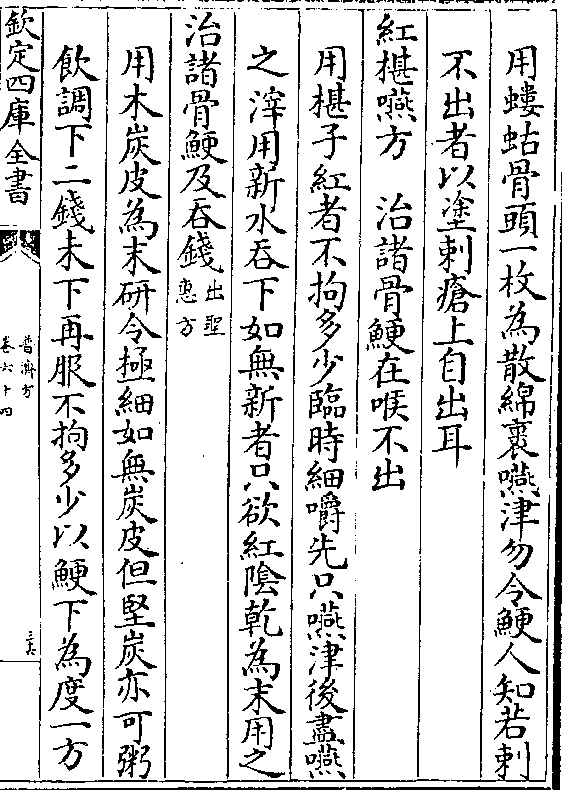 用螻蛄骨頭一枚為散綿裹嚥津勿令鯁人知若刺
不出者以塗刺瘡上自出耳
紅椹嚥方　治諸骨鯁在喉不出
用椹子紅者不拘多少臨時細嚼先只嚥津後盡嚥
之滓用新水吞下如無新者只欲紅陰乾為末用之
治諸骨鯁及吞錢出聖惠方
用木炭皮為末研令極細如無炭皮但堅炭亦可粥
飲調下二錢未下再服不拘多少以鯁下為度一方
欽定四庫全書
普濟方
卷六十四